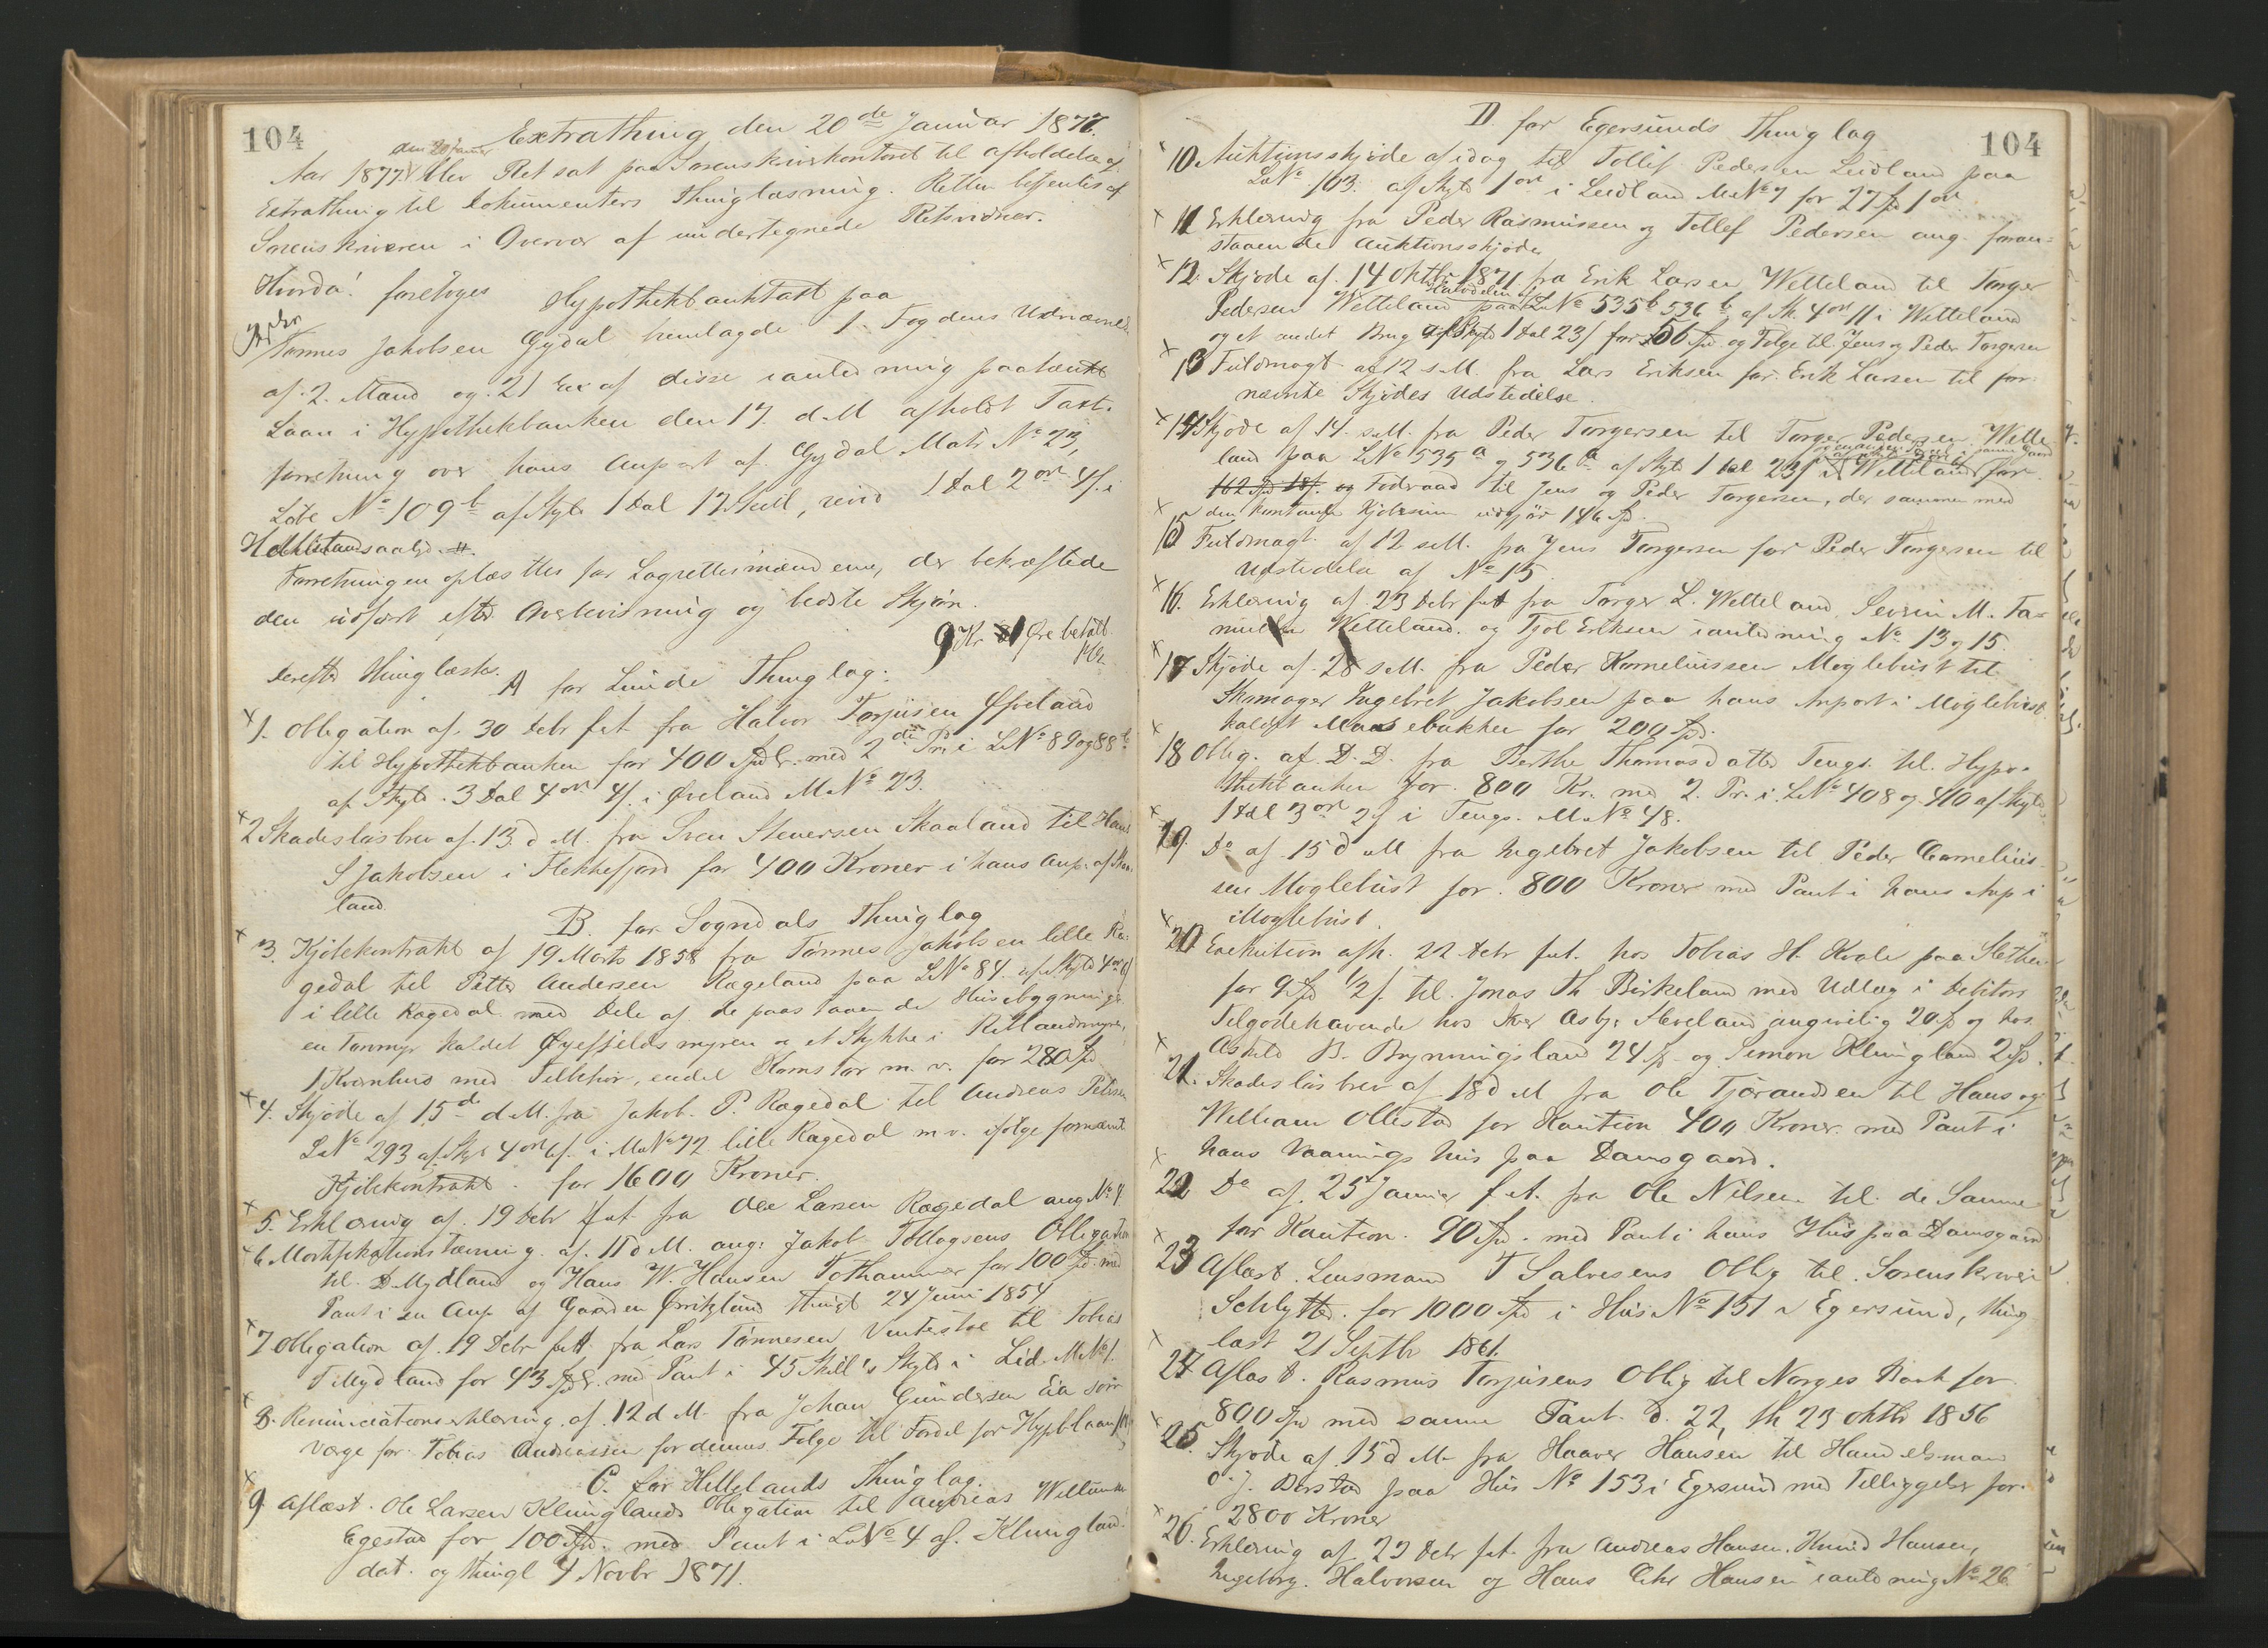 104
Extrathing den 20de Januar 1877.
Aar 1877 den 20 Januar blev Ret sat paa Sorenskriverkontoret til afholdelse af
Extrathing til Dokumenters Thinglæsning. Retten betjentes af
Sorenskriveren i Overvær af undertegnede Retsvidner.
Hvorda! foretoges Hypothekbanktaxt paa
Tønnes Jakobsen Gydal fremlagde 1. Fogdens Udnævnelse
af 2. Mand og 2) Ex af disse i anledning paatænkt
Laan i Hypothekbanken den 17. d.M. afholdt Taxt-
forretning over hans Anpart af Gydal Matr No 23,
Løbe No 109b af Skyld 1 Dal 17 Skill, revid 1 Dal 2 ort 4 s. i
Hellelands aalyd.
Forretningen oplæstes for Lagrettesmændene, der bekræftede
den udført efter Overbevisning og bedste Skjøn.
9 Kr 81 Øre betalt
Derefter thinglæstes.
A for Lunde Thinglag:
1. Obligation af 30 Debr f.A. fra Halvor Torjusen Øveland
til Hypothekbanken for 400 Spdlr. med 2den Pr. i LNo 89 og 88b
af Skyld 3 Dal 4 ort 4 s. i Øveland MNo 23.
2 Skadesløsbrev af 13 d.M. fra Sven Stenersen Skaaland til Hans
S Jakobsen i Flekkefjord for 400 Kroner i hans Anp. af Skaa-
land
B. for Sogndals Thinglag
3. Kjøbekontrakt af 19 Marts 1858 fra Tønnes Jakobsen lille Ra-
gedal til Petter Andersen Rægeland paa LNo 84 af Skyld 4 ort 6 s
i lille Ragedal med Dele af de paastaaende Huse bygninger
en Torvmyr kaldet Øyefjelds myren og et Stykke i Retlandsmyren,
1 Kvernhus med Tilbehør, endel Kornstør m.v. for 280 Spd
4. Skjøde af 15de d.M. fra Jakob P. Rægedal til Andreas Petersen
LNo 293 af Skyld 4 ort 6 s. i MNo 72 lille Ragedal m.v. ifølge fornævnte
Kjøbekontrakt for 1600 Kroner.
5. Erklæring af 19 Debr f.A. fra Ole Larsen Ragedal ang No 4
6 Mortifikationstævning af 11 d.M. ang: Jakob Tollagsens Obligation
til D. Mydland og Hans W. Hansen Tothammer for 100 Spd. med
Pant i en Anp af Gaarden Ørritsland thingl 24 Juni 1854
7 Obligation af 19 Debr f.A. fra Lars Tønnesen Vinterstøe til Tobias
T Mydland for 43 Spdlr. med Pant i 45 Skill's Skyld i Lid. MNo 1.
8. Renunciationserklæring af 12 d.M. fra Johan Gundersen Eia som
Værge for Tobias Andreassen for dennes Følge til Fordel for Hypblaan
C. for Hellelands Thinglag.
9 Aflæst. Ole Larsen Klunglands Obligation til Andreas Willumsen
Egestad for 100 Spd. med Pant i LNo 4 af Klungland
dat. og thingl 4 Novbr 1871.
D. for Egersunds Thinglag
104
10 Auktionsskjøde af idag til Tollef Pedersen Leidland paa
LNo 103. af Skyld 1 ort i Leidland MNo 7 for 27 Spd 1 ort
11 Erklæring fra Peder Rasmussen og Tollef Pedersen ang. foran-
staaende Auktionsskjøde
12. Skjøde af 14 Oktbr 1871 fra Erik Larsen Wetteland til Torger
Pedersen Wetteland paa Halvdelen af LNo 535b 536b af Sk. 4 ort 11 i Wetteland
og et andet Brug af Skyld 1 Dal 23 s for 56 Spd og Følge til Jens og Peder Torgersen
13 Fuldmagt af 12 s.M. fra Lars Eriksen for Erik Larsen til for-
nævnte Skjødes Udstedelse.
14 Skjøde af 14 s.M. fra Peder Torgersen til Torger Pedersen Wette-
land paa LNo 535a og 536a af Skyld 1 Dal 23 s i Wetteland for
162 Spd 18 s. og Fodraad til Jens og Peder Torgersen, der sammen med
den kontante Kjøbesum udgjør 146 Spd.
15 Fuldmagt af 12 s.M. fra Jens Torgersen for Peder Torgersen til
Udstedelse af No 15
16. Erklæring af 23 Debr f.A. fra Torger L. Wetteland, Severin M. Tar-
Wetteland og Tjol Eriksen i anledning No 13 og 15.
17 Skjøde af 28 s.M. fra Peder Korneliussen Møglebust til
Skomager Ingebret Jakobsen paa hans Anpart i Møglebust
kaldet Maasebakken for 200 Spd.
18 Oblig. af D.D. fra Berthe Thomasdatter Tengs til Hypo-
thekbanken for 800 Kr. med 2. Pr. i LNo 408 og 410 af Skyld
1 Dal 3 ort 2 s i Tengs MNo 48.
19. Do af 15 d.M fra Ingebret Jakobsen til Peder Cornelius-
sen Møglebust for 800 Kroner med Pant i hans Anp i
Møglebust.
20 Exekution afh. 22 Debr f.A. hos Tobias H. Kvale paa Slethei
for 9 Spd 1/2 s. til Jonas Th Birkeland med Udlæg i Debitors
Tilgodehavende hos Iver Asbj: Sleveland angivelig 20 Spd og hos
Asbild B. Brynningsland 24 Spd og Simon Klungland 2 Spd.
21. Skadesløsbrev af 18 d.M fra Ole Tjørandsen til Hans og
William Ollestad for Kaution 400 Kroner med Pant i
hans Vaaningshus paa Damsgaard.
22 Do af 25 Januar f.A. fra Ole Nilsen til de Samme
for Kaution 90 Spd. med Pant i hans Hus paa Damsgaard
23 Aflæst. Lensmand T Salvesens Oblig til Sorenskriver
Schlytter for 1000 Spd i Hus No 151 i Egersund, thing-
læst 21 Septbr 1861.
24 Aflæst. Rasmus Torjusens Oblig til Norges Bank for
800 Spd med samme Pant. d. 22, th 23 Oktbr 1856
25. Skjøde af 15 d.M. fra Haaver Hansen til Handelsmand
O. J. Børstad paa Hus No 153 i Egersund med Tilliggelse for
2800 Kroner
26. Erklæring af 23 Debr f.A. fra Andreas Hansen, Knud Hansen,
Ingeborg Halvorsen og Hans Chr Hansen i anledning No 26